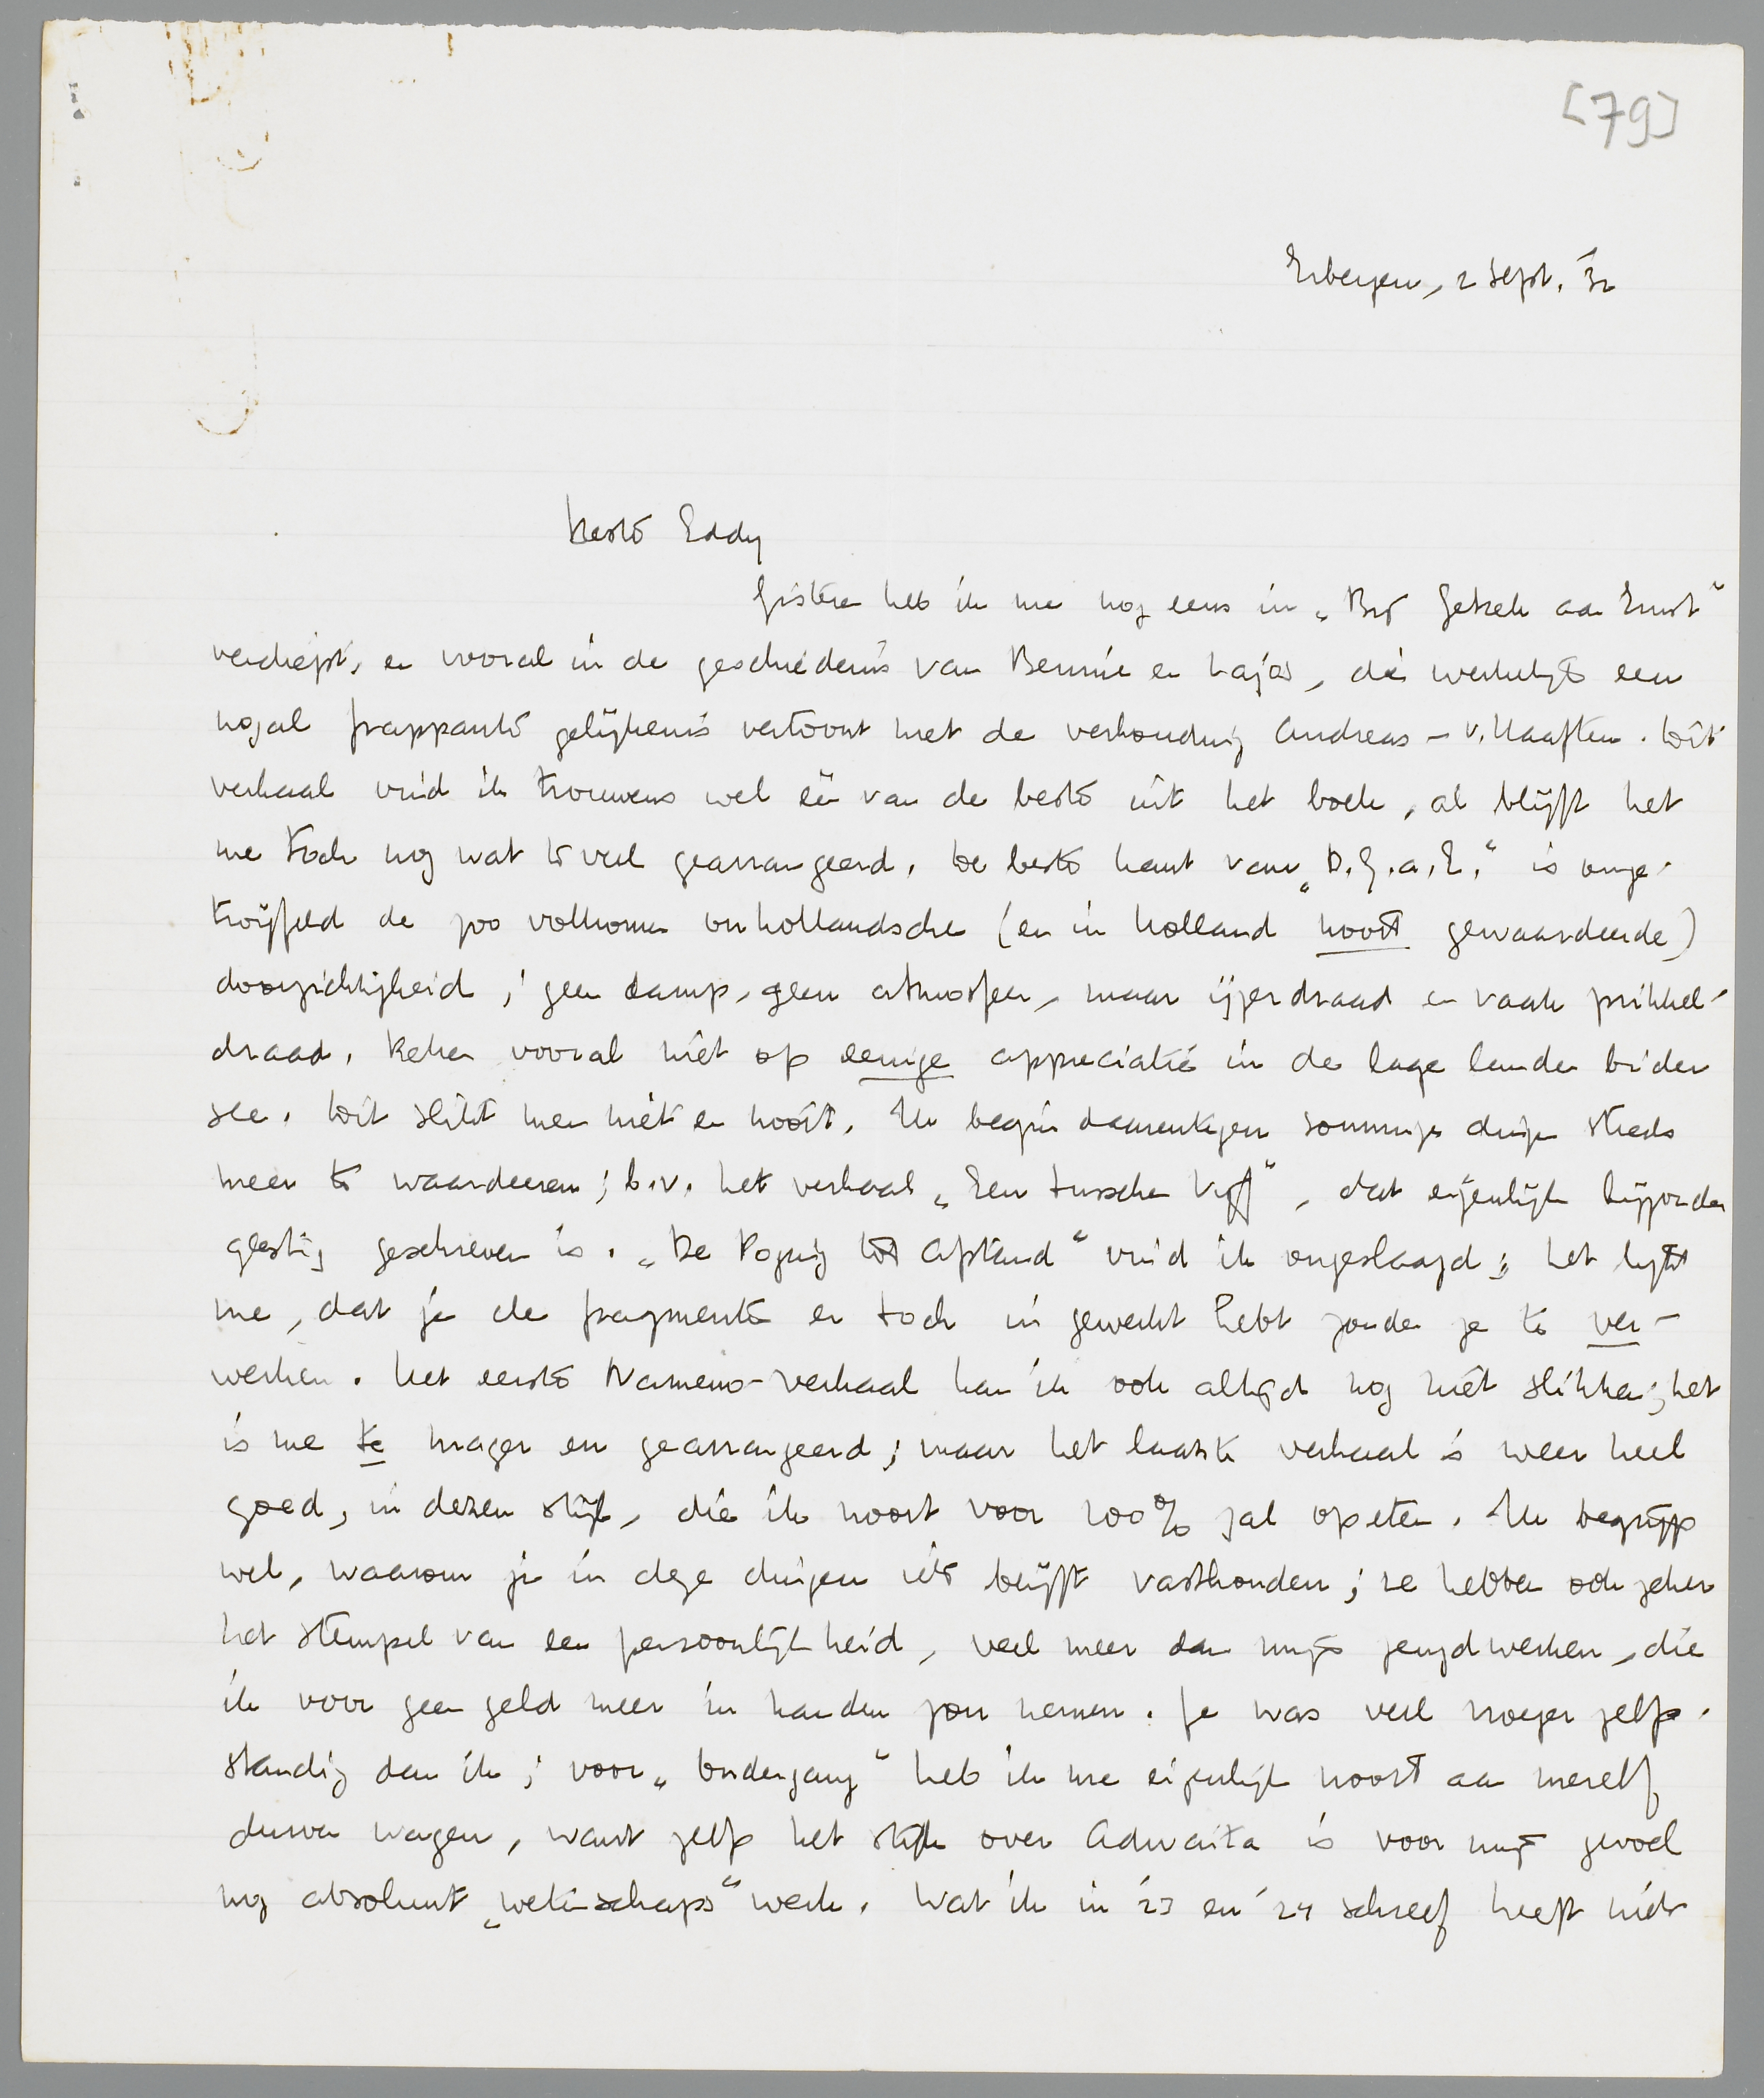 [79]
Eibergen, 2 Sept. '32
Beste Eddy
Gisteren heb ik me nog eens in „Bij Gebrek aan Ernst"
verdiept, en vooral in de geschiedenis van Bennie en Lajos, die werkelijk een
nogal frappante gelijkenis vertoont met de verhouding Andreas – v. Haaften. Dit
verhaal vind ik trouwens wel één van de beste uit het boek, al blijft het
me toch nog wat te veel gearrangeerd. De beste kant van „B.G.a.E." is onge-
twijfeld de zoo volkomen onhollandsche (en in Holland nooit gewaardeerde)
doorzichtigheid; geen damp, geen atmosfeer, maar ijzerdraad en vaak prikkel-
draad. Reken vooral niet op eenige appreciatie in de lage landen bi der
see. Dit slikt men niet en nooit. Ik begin daarentegen sommige dingen steeds
meer te waardeeren; b.v. het verhaal „Een tusschen Vijf", dat eigenlijk bijzonder
geestig geschreven is. „De Poging tot Afstand" vind ik ongeslaagd; het lijkt
me, dat je de fragmenten er toch in gewerkt hebt zonder ze te ver-
werken. Het eerste Nameno-verhaal kan ik ook altijd nog niet slikken; het
is me te mager en gearrangeerd; maar het laatste verhaal is weer heel
goed, in dezen stijl, die ik nooit voor 100% zal opeten. Ik begrijp
wel, waarom je in deze dingen iets blijft vasthouden; ze hebben ook zeker
het stempel van een persoonlijkheid, veel meer dan mijn jeugdwerken, die
ik voor geen geld meer in handen zou nemen. Je was veel vroeger zelf-
standig dan ik; voor „Ondergang" heb ik me eigenlijk nooit aan mezelf
durven wagen, want zelfs het stuk over Adwaita is voor mijn gevoel
nog absoluut „wetenschaps"werk. Wat ik in '23 en '24 schreef heeft niets